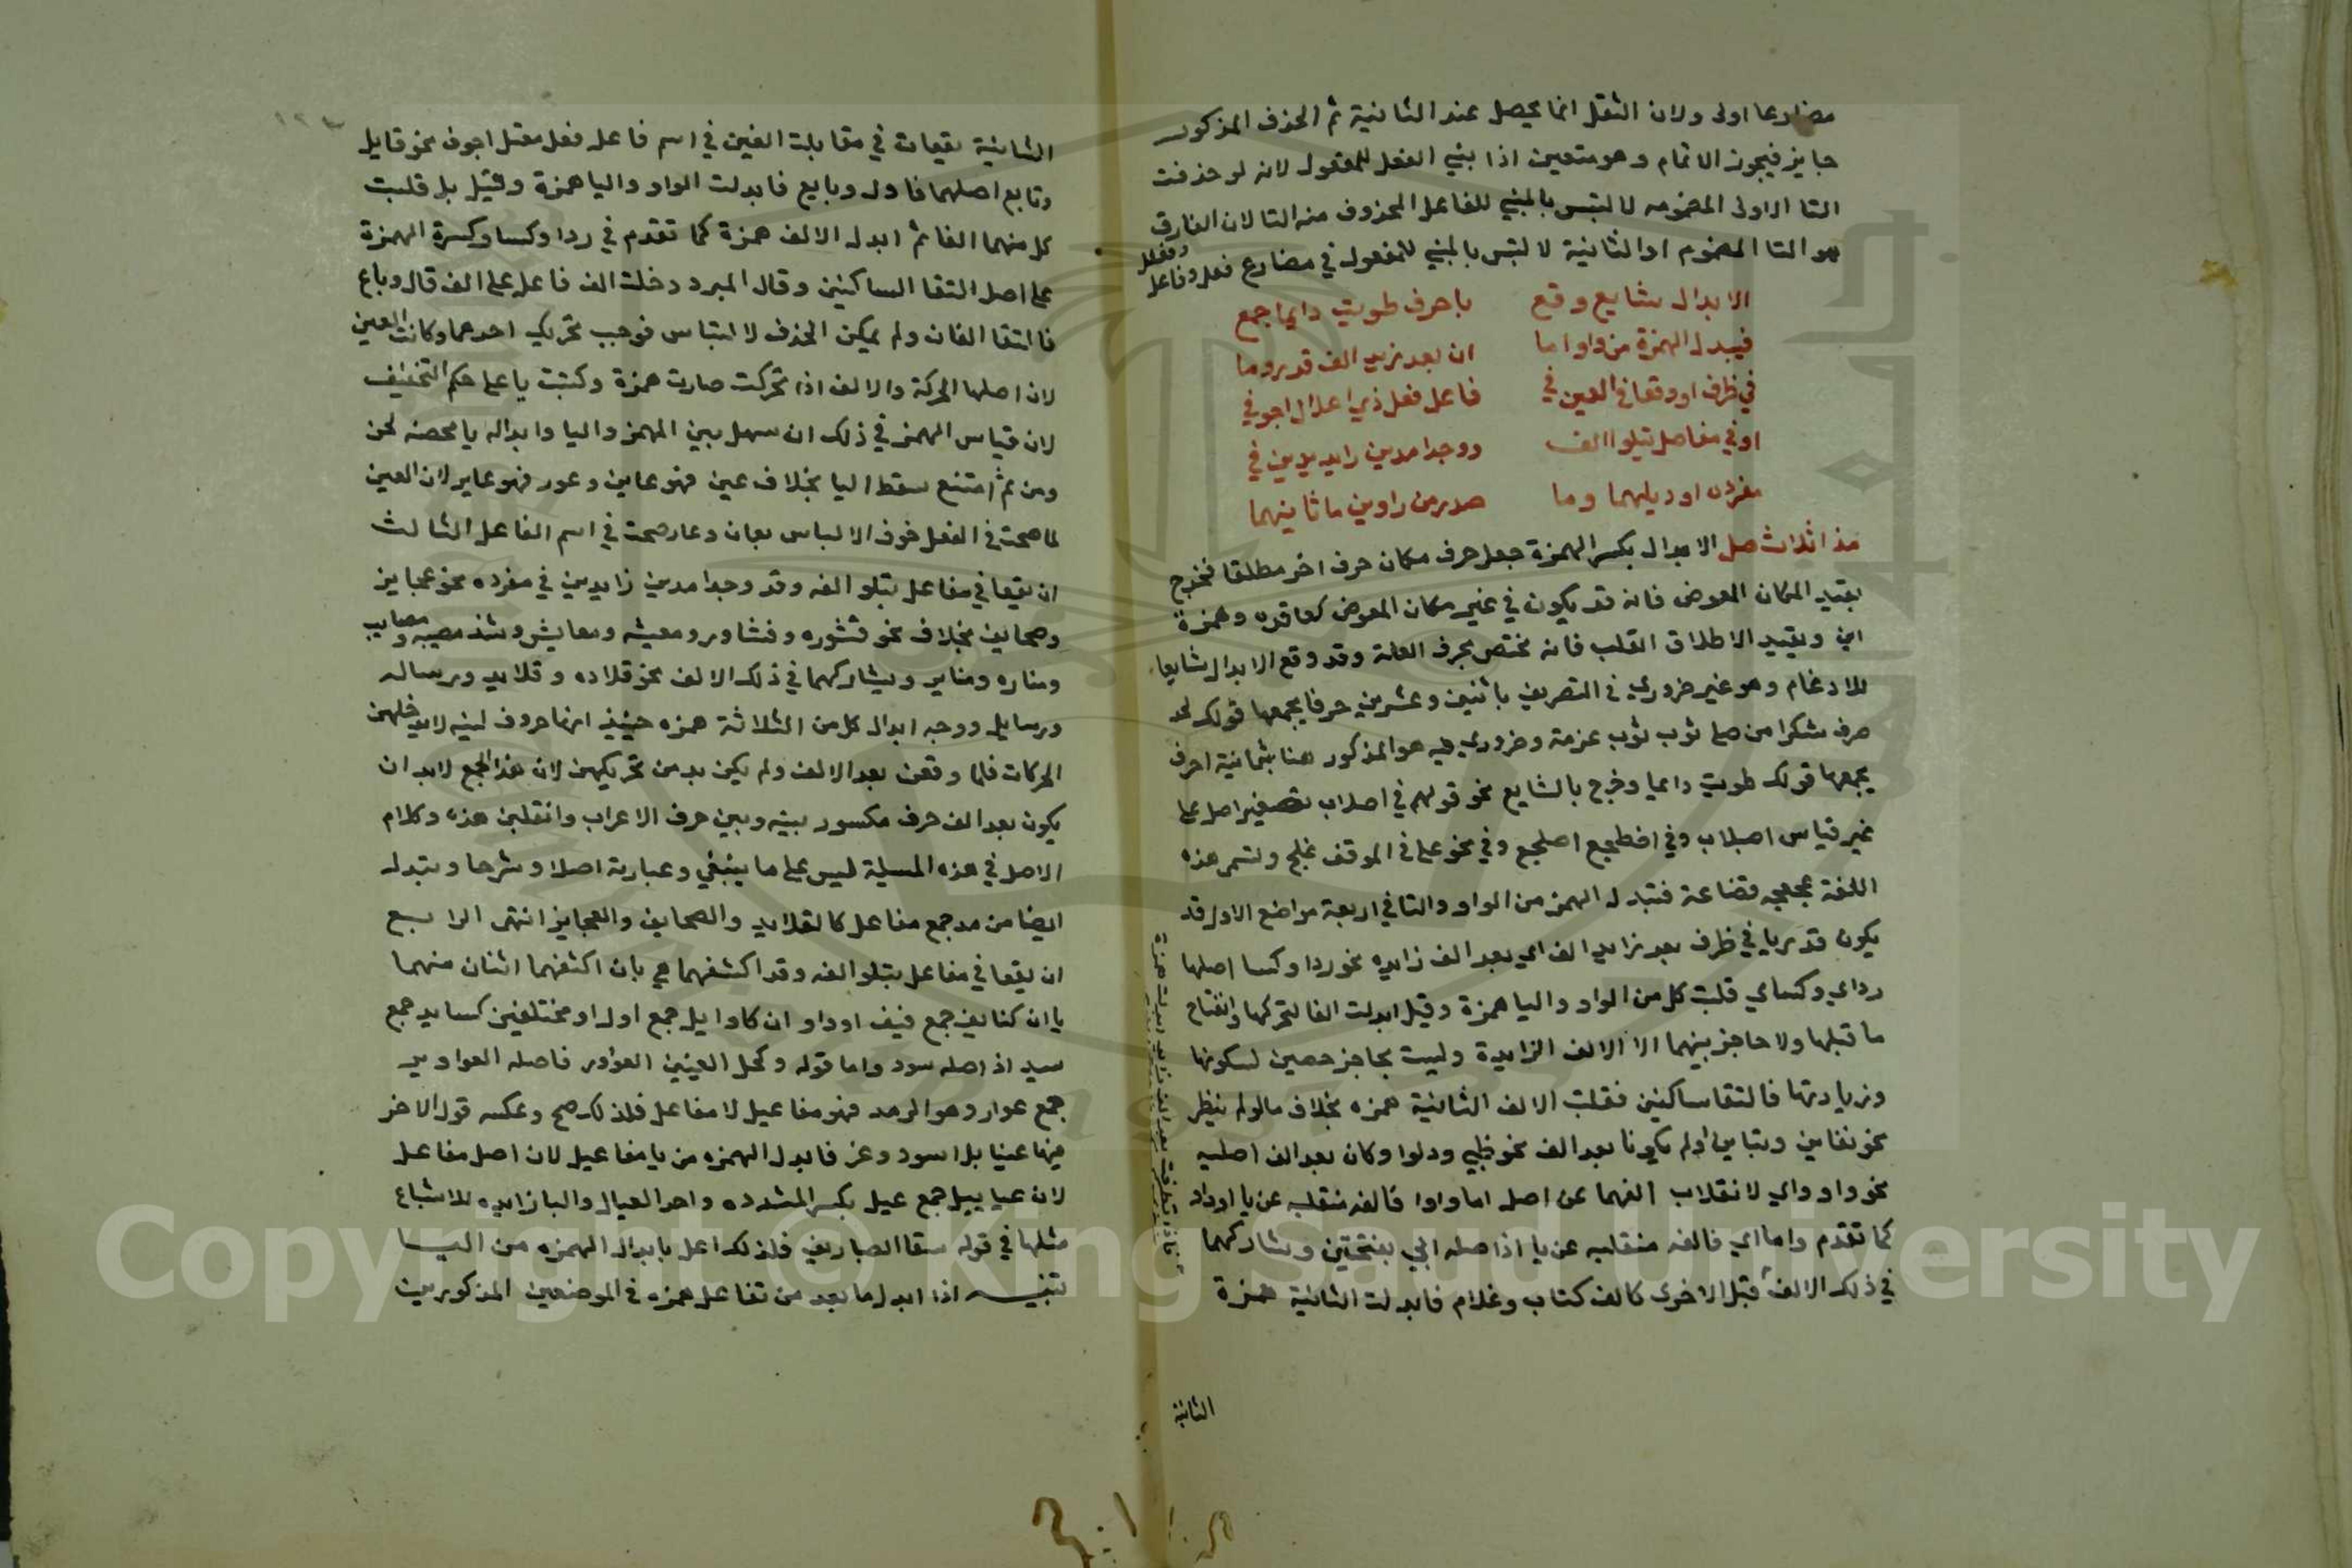 مضارعا اولى ولان الثقل انما يحصل عند الثانية ثم الحذف المذكور
جايز فيجوز الاتمام وهو متعين اذا بني الفعل للمفعول لانه لو حذفت
التا الاولى المضمومه لالتبس بالمبني للفاعل المحذوف منه التا لان الفارق
هو التا المضموم او الثانية لالتبس بالمبني للمفعول في مضارع فعل وفاعل
وفعلل
الابدال شايع وقع باحرف طويت دايما جمع
فيبدل الهمزة من واو اما ان بعد زيد الف قد يروما
في ظرف او وقعا في العين في فاعل فعل ذي اعلال اجوفي
او في مفاعل تيلوا الف ووجدا مدين زايديدين في
مفرده او ديلهما وما صدر من راوين ما ثانيهما
الابدال بكسر الهمزة جعل حرف مكان حرف اخر مطلقا فخرج
بقيد المكان العوض فانه قد يكون في غير مكان المعوض كعاقده وهمزة
ابن وبقيد الاطلاق القلب فانه يختص بحرف العلة وقد وقع الابدال شايعا
للادغام وهو غير ضروري في التصريف باثنين وعشرين حرفا يجمعها قولك لجد
صرف شكرا من طي ثوب عزمة وضروري فيه هو المذكور هنا بثمانية احرف
يجمعها قولك طويت دايما وخرج بالشايع نحو قولهم في اصلاب تصغير اصل على
غير قياس اصيلاب وفي اضطجع اصلجع وفي نحو علي في الموقف علج وتسمى هذه
اللغة عجعجه قضاعة فتبدل الهمز من الواو والتا في اربعة مواضع الاول قد
يكون قد يريا في ظرف بعد زايد الف اي بعد الف زايده نحو ردا وكسا اصلها
رداي وكساي قلبت كل من الواو واليا همزة وقيل ابدلت الفا لتحركها وانفتاح
ما قبلها ولا حاجز بينهما الا الالف الزايدة وليست بحاجز حصين لسكونها
وزيادتها فالتقا ساكنين فقلبت الالف الثانية همزه بخلاف مالو لم ينظر
نحو تعاين وتباين او لم يكونا بعد الف نحو ظبي ودلوا وكان بعد الف اصليه
نحو واو واي لانقلاب الفهما عن اصل اما واوا فالفه منقلبه عن يا او واو
كما تقدم واما اي فالفه منقلبه عن يا اذ اصله ابي بفتحتين ويشاركهما
في ذلك الالف قبل الاخرى كالف كتاب وغلام فابدلت الثانية همزة
الثانية
الثانية يقعان في مقابلة العين في اسم فاعل فعل معتل اجوف نحو قايل
وتابع اصلهما قاول وبايع فابدلت الواو واليا همزة وقيل بل قلبت
كل منهما الفا ثم ابدل الالف همزة كما تقدم في ردا وكسا وكسرة الهمزة
على اصل التقا الساكنين وقال المبرد دخلت الف فاعل على الف قال وباع
فالتقا الفان ولم يمكن الحذف لالتباس فوجب تحريك احدهما وكانت العين
لان اصلها الحركة والالف اذا تحركت صارت همزة وكتبت يا على حكم التخفيف
لان قياس الهمز في ذلك ان تسهل بين الهمز واليا وابداله يا محضه لحن
ومن ثم امتنع نقط اليا بخلاف عين فهو عاين وعور فهو عاير لان العين
لما صحت في الفعل خوف الالباس بعان وعار صحت في اسم الفاعل الثالث
ان يقعا في مفاعل يتلو الفه وقد وجدا مدين زايدين في مفرده نحو عجايز
وصحايف بخلاف نحو قشوره وقشاور ومعيشه ومعايش وشذ مصيبه ومصايب
ومناره ومناير ويشاركهما في ذلك الالف نحو قلاده وقلايد ورساله
ورسايل ووجه ابدال كل من الثلاثة همزه حينيذ انها حروف لينه لا يدخلهن
الحركات فلما وقعن بعد الالف ولم يكن بد من تحريكهن لان هذا الجمع لابد ان
يكون بعد الف حرف مكسور بينه وبين حرف الاعراب وانقلبن همزه وكلام
الاصل في هذه المسيلة ليس على ما ينبغي وعبارته اصلا وشرحا وتبدل
ايضا من مد جمع مفاعل كالقلايد والصحايف والعجايز انتهى الرابع
ان يقعا في مفاعل يتلو الفه وقد اكتنفهما هي بان اكتنفهما اثنان منهما
يا ان كنيايف جمع نيف او واو ان كاوايل جمع اول او مختلفين كسايد جمع
سيد اذ اصله سود واما قوله وكحل العينين العواور فاصله العواوير
جمع عوار وهو الرمد فهو مفاعيل لا مفاعل فلذلك صح وعكسه قول الاخر
فيها عيابيل اسود وعز فابدل الهمزه من يا مفاعيل لان اصل مفاعل
لان عيابيل جمع عيل بكسر المشدده واحد العيال واليا زايده للاشباع
مثلها في قوله تنقا الصياريف فلذلك اعل بابدال الهمزه من اليا
تنبيه اذا ابدل ما بعد من تفاعل همزه في الموضعين المذكورين
Copyright © King Saud University